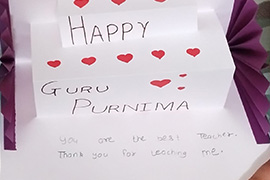 HAPPY
GURU
PURNIMA
You are the best Teacher.
Thank you for teaching me.